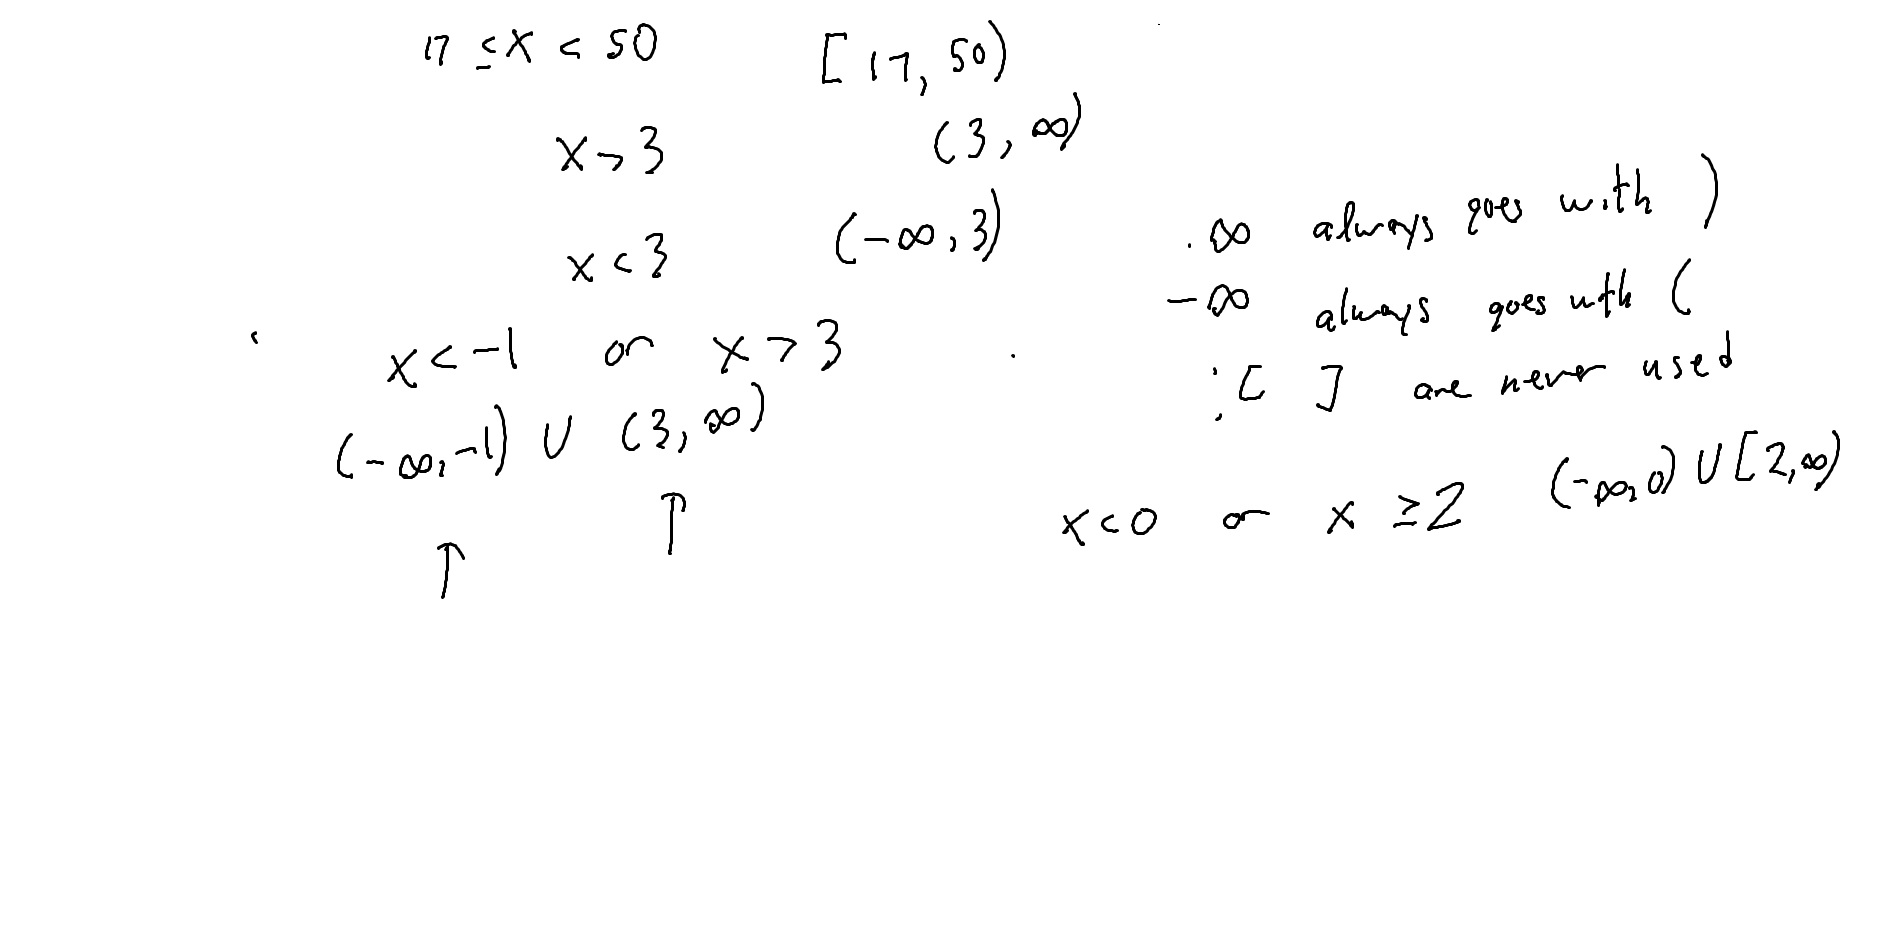 17 ≤ x < 50 [17, 50)
x > 3 (3, ∞)
x < 3 (-∞, 3)
x < -1 or x > 3
(-∞, -1) ∪ (3, ∞)
↑ ↑
. ∞ always goes with )
-∞ always goes with (
; [ ] are never used
x < 0 or x ≥ 2 (-∞, 0) ∪ [2, ∞)